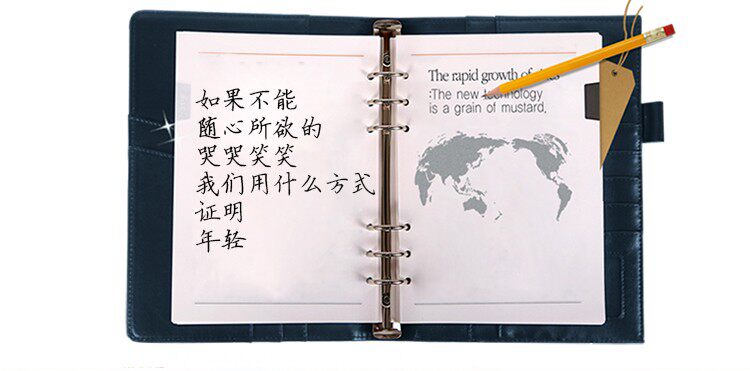 如果不能
随心所欲的
哭哭笑笑
我们用什么方式
证明
年轻
The rapid growth of
:The new technology
is a grain of mustard,